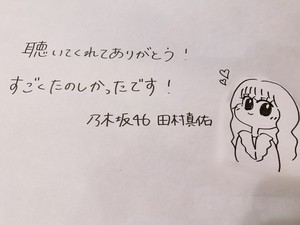 聴いてくれてありがとう！
すごくたのしかったです！
乃木坂46 田村真佑